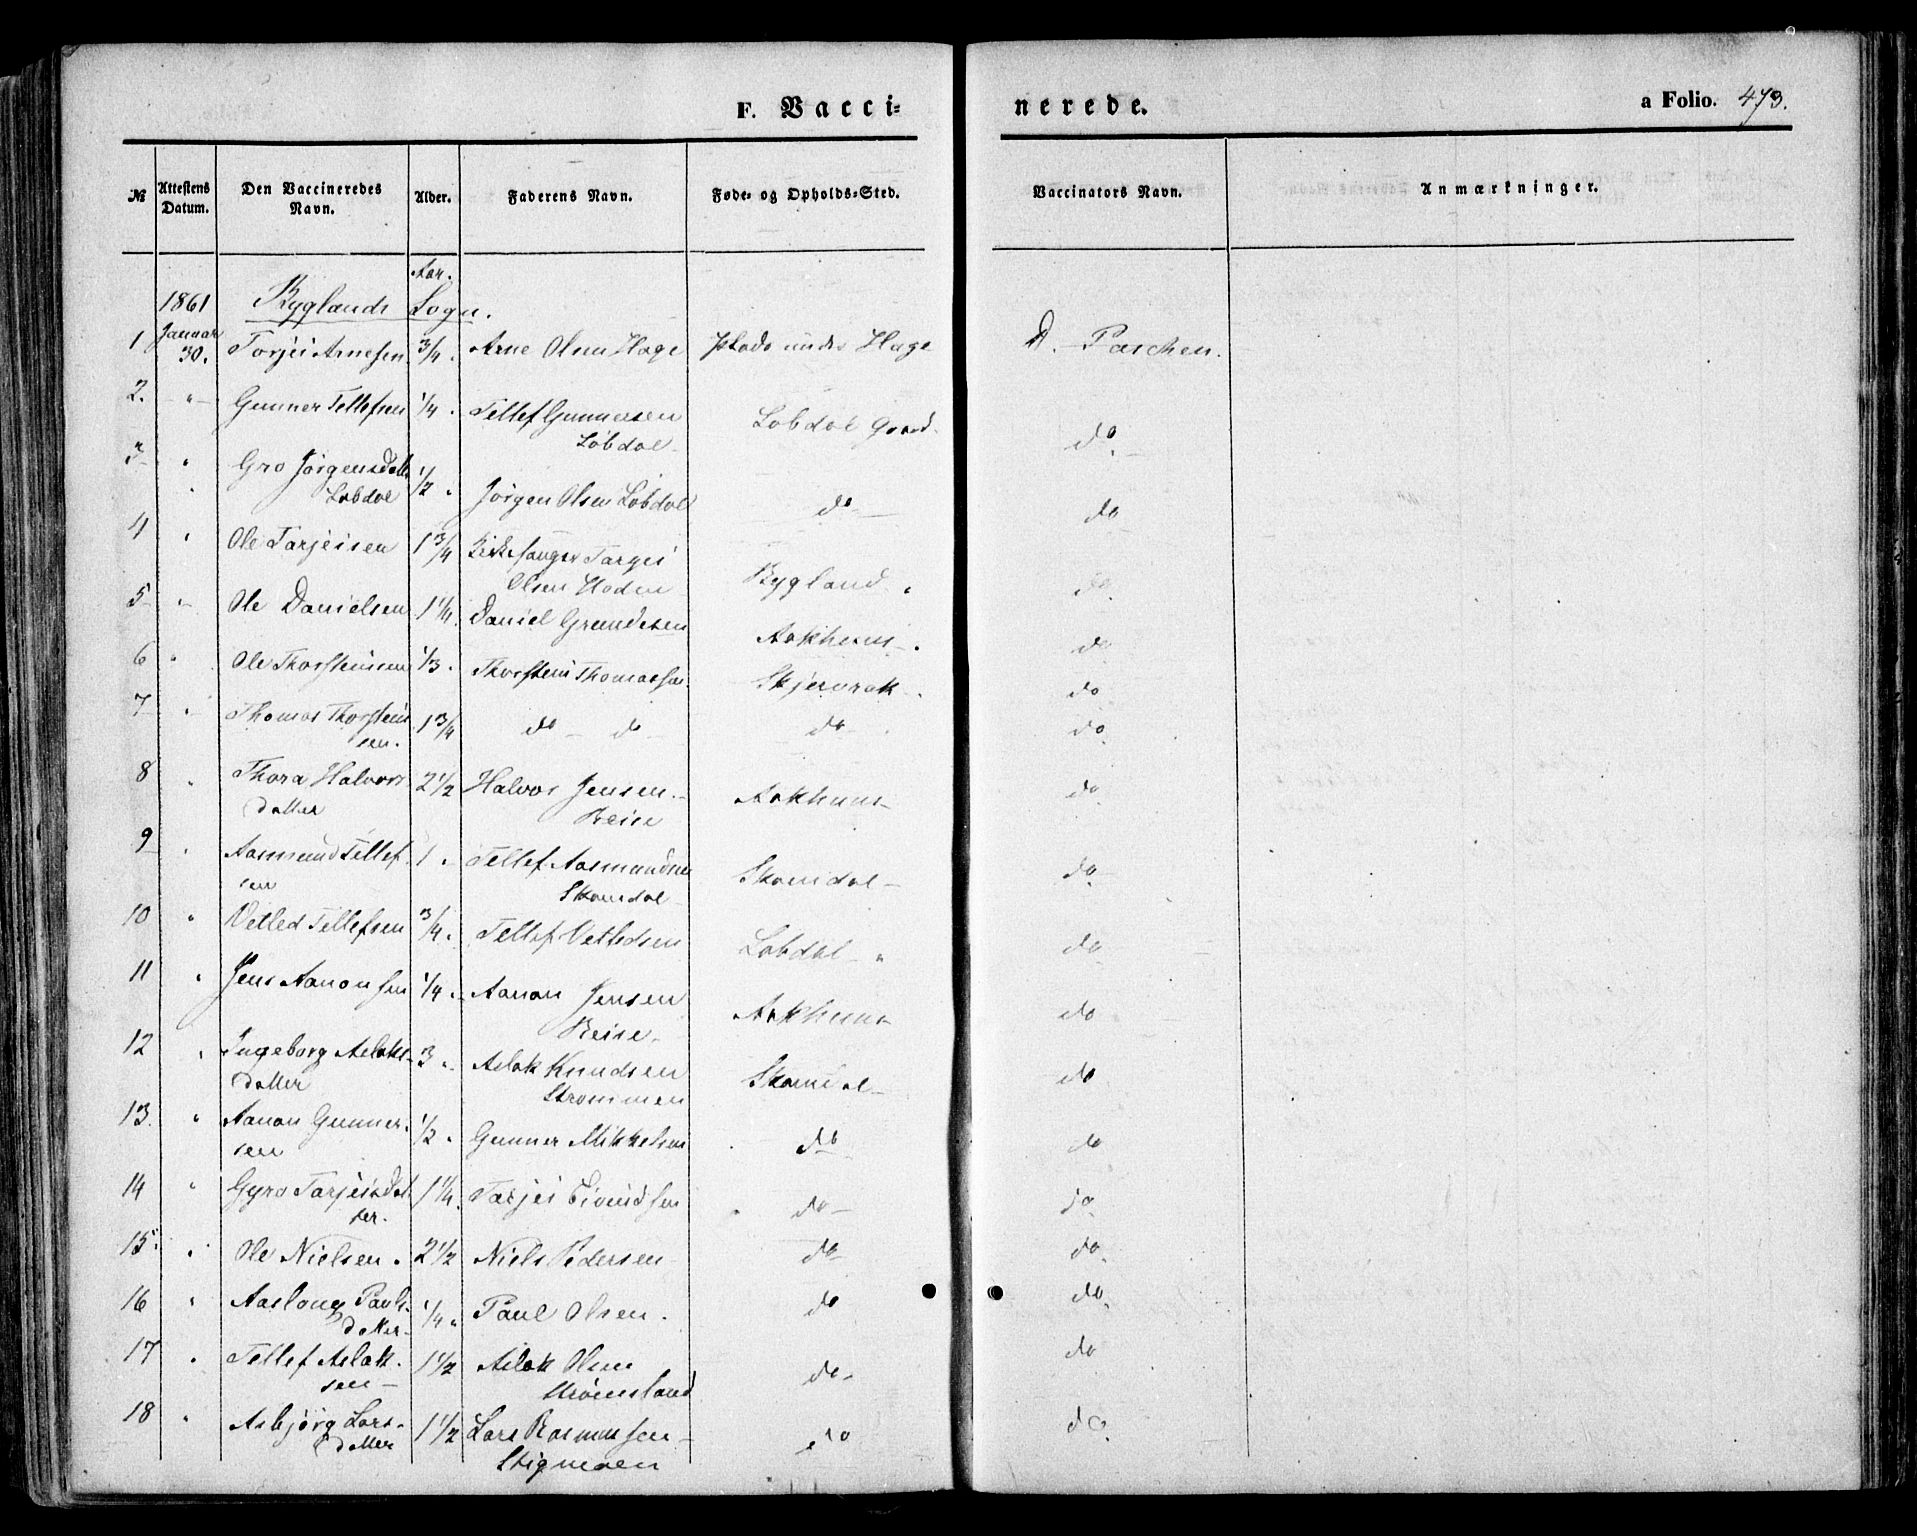 F. Vacci-
nerede.
a Folio. 473.
№ Attestens Datum. Den Vaccineredes Navn. Alder. Faderens Navn. Føde- og Opholds-Sted. Vaccinators Navn. Anmærkninger.
Aar.
1861 Byglands Sogn.
1 Januar 30. Torjei Arnesen 3/4. Arne Olsen Hage Plads under Hage D. Paschen.
2. -"- Gunner Tellefsen 1/4. Tellef Gunnersen
Løbdal Lobdal Gaard. do
3 " Gro Jørgensdatter
Løbdal 1/2 " Jørgen Olsen Løbdal do do
4 " Ole Tarjeisen 1 3/4 Kirkesanger Targei
Olsen Bygland " do
5 -"- Ole Danielsen 1 1/4. Daniel Grundesen Aakhuus. do
6 " Ole Thorsteinsen 1/3. Thorstein Thomassen Skjevrak. do
7 " Thomas Thorsteins
sen. 1 3/4 do do do do
8 " Thora Halvors
datter 2 1/2 Halvor Jensen
Beise Aakhuus do
9 " Aasmund Tellef
sen 1 " Tellef Aasmundsen
Skomdal Skomdal do
10 " Vetled Tellefsen 3/4. Tellef Vetledsen Lobdal " do
11 " Jens Aanonsen 1/4. Aanon Jensen
Beise Aakhuus do
12 " Ingeborg Aslaks-
datter 3 " Aslak Knudsen
Strømmen Skomdal do
13. " Aanon Gunner-
sen 1/2. Gunner Mikkelsen do do
14 " Gyro Tarjeisdat
ter. 1 1/4. Tarjei Eivindsen do do
15. " Ole Nielsen. 2 1/2 Niels Pedersen do do
16 " Aaslaug Pauls-
datter 1/4 " Paul Olsen. do do
17 " Tellef Aslak-
sen 1 1/2 Aslak Olsen
Strømsland do do
18 " Asbjørg Lars-
datter 1 1/2 Lars Rasmussen
Stigmoen do do